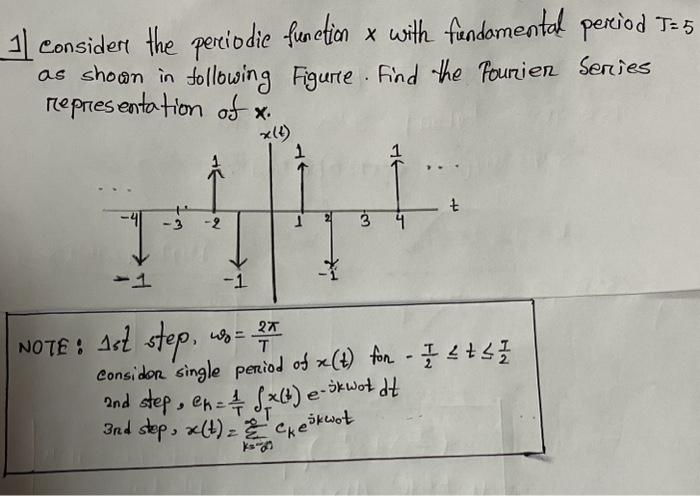 1] Consider the periodic function x with fundamental period T=5
as shown in following Figure. Find the Fourier Series
representation of x.
x(t)
1 1 1
... ...
-4 -3 -2 1 2 3 4 t
-1 -1 -1
NOTE: 1st step, ω₀ = 2π/T
Consider single period of x(t) for - T/2 ≤ t ≤ T/2
2nd step, ck = 1/T ∫T x(t) e^-jkω₀t dt
3rd step, x(t) = ∞Σk=-∞ ck e^jkω₀t